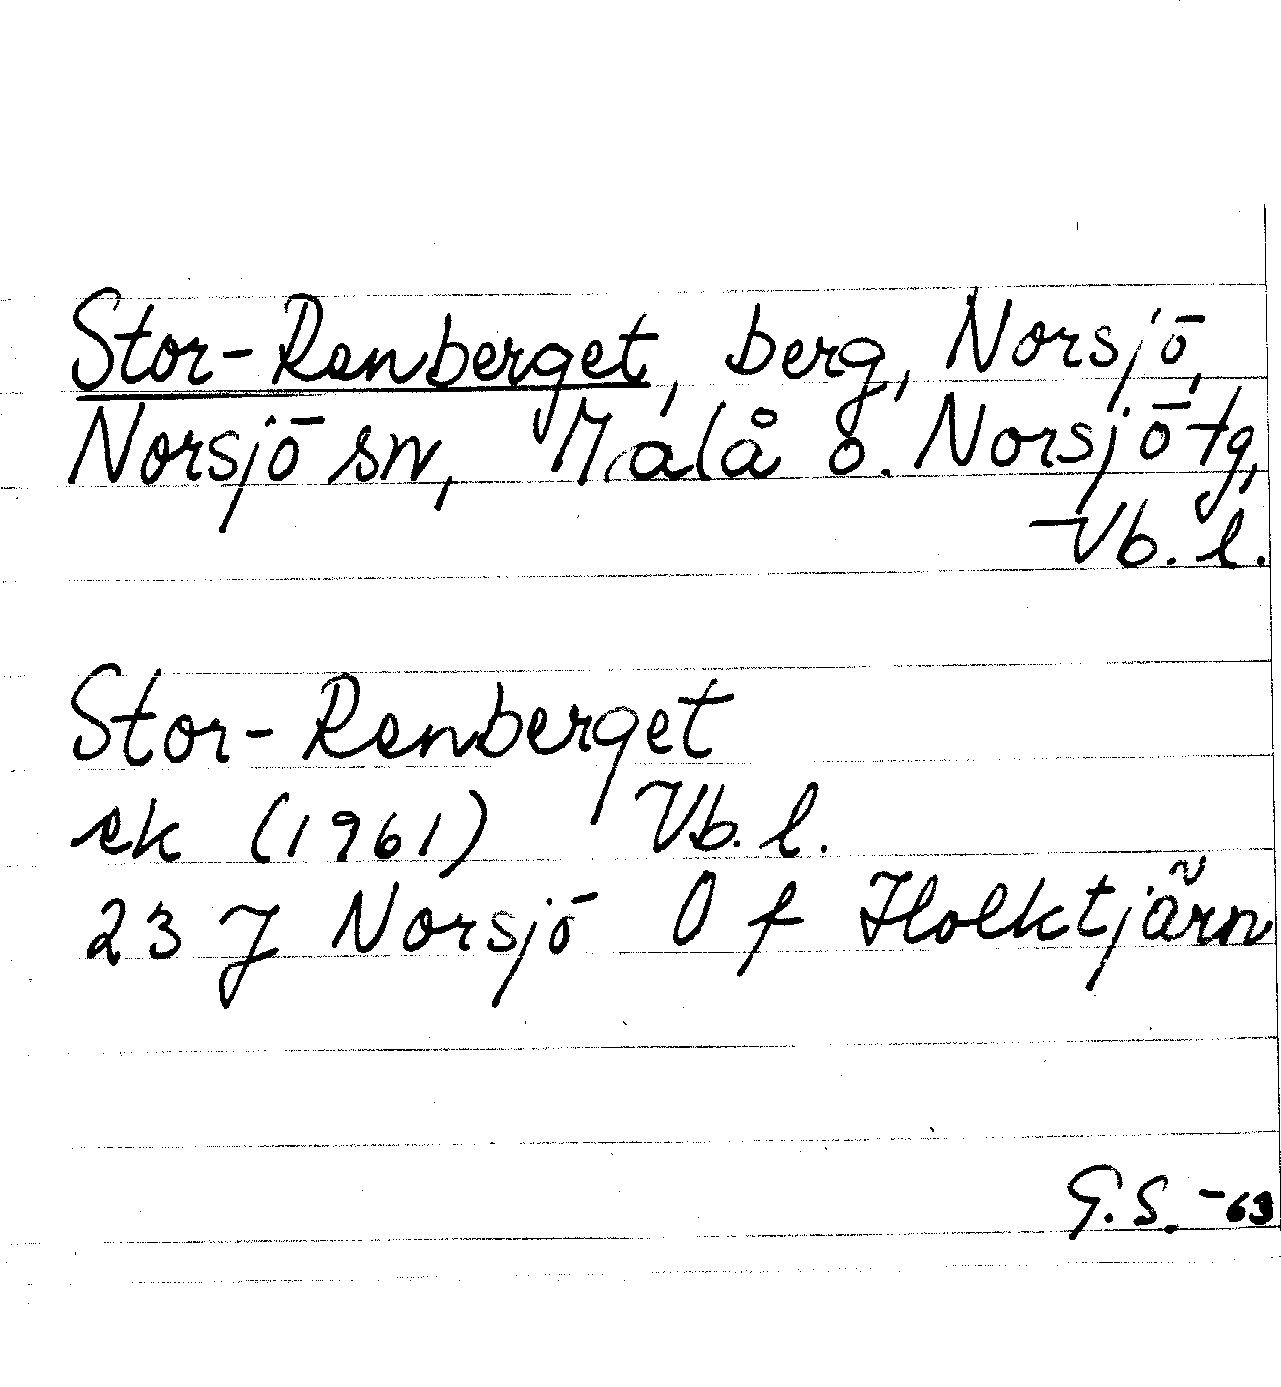 Stor-Renberget, berg, Norsjö,
Norsjö sn, Malå o. Norsjö tg,
Vb. l.
Stor-Renberget
ek (1961) Vb. l.
23 J Norsjö O f Holktjärn
G.S. -63